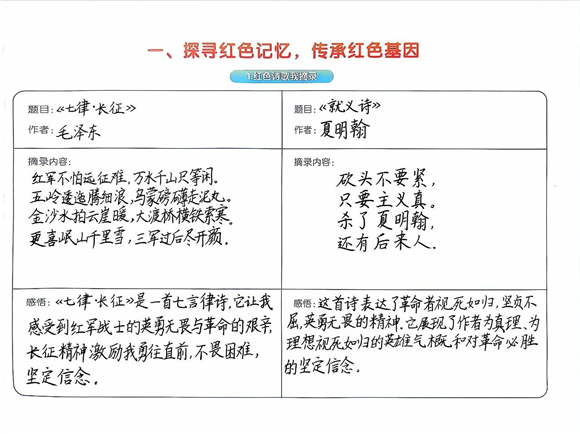 一、探寻红色记忆，传承红色基因
1.红色诗歌我摘录
题目：《七律·长征》
作者：毛泽东
摘录内容：
红军不怕远征难，万水千山只等闲。
五岭逶迤腾细浪，乌蒙磅礴走泥丸。
金沙水拍云崖暖，大渡桥横铁索寒。
更喜岷山千里雪，三军过后尽开颜。
感悟：《七律·长征》是一首七言律诗，它让我
感受到红军战士的英勇无畏与革命的艰辛，
长征精神激励我勇往直前，不畏困难，
坚定信念。
题目：《就义诗》
作者：夏明翰
摘录内容：
砍头不要紧，
只要主义真。
杀了夏明翰，
还有后来人.
感悟：这首诗表达了革命者视死如归，坚贞不
屈，英勇无畏的精神.它展现了作者为真理、为
理想视死如归的英雄气概和对革命必胜
的坚定信念。